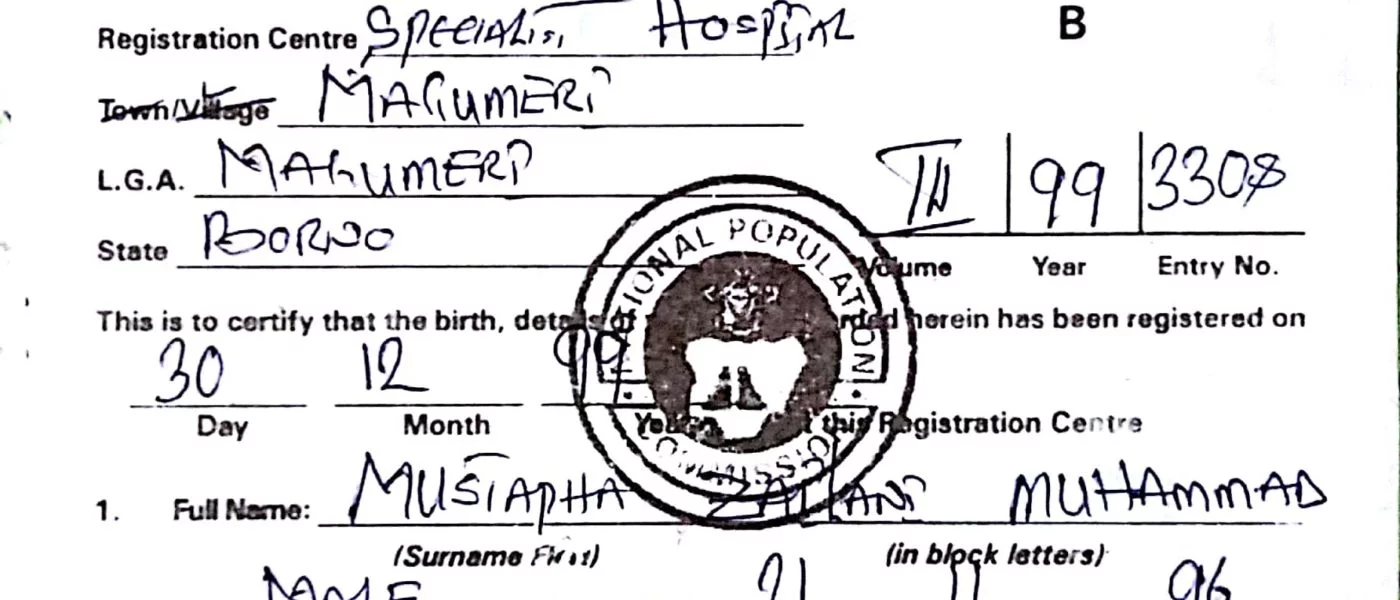 Registration Centre SPECIALIST HOSPITAL B
Town/Village MAGUMERI
L.G.A. MAGUMERI
State BORNO
III 99 3308
Volume Year Entry No.
NATIONAL POPULATION COMMISSION
This is to certify that the birth, details of herein has been registered on
30 12 99
Day Month Year at this Registration Centre
1. Full Name: MUSTAPHA MUHAMMAD
(Surname First) (in block letters)
96